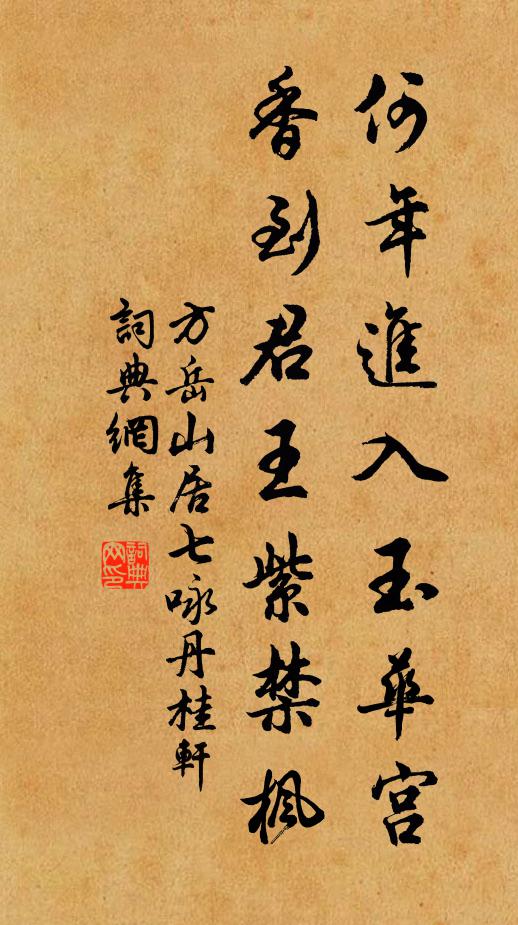 何年進入玉華宮
香到君王紫禁楓
方岳山居七咏丹桂軒
詞典網集
詞典網印